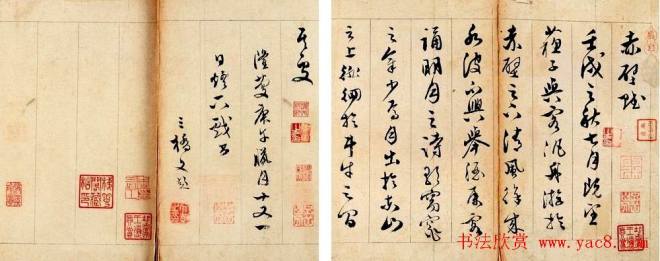 赤壁賦
壬戌之秋七月既望
蘇子與客泛舟游於
赤壁之下清風徐来
水波不興舉酒屬客
誦明月之詩歌窈窕
之章少焉月出於東山
之上徘徊於斗牛之間
隆慶庚午臘月十又一
日燈下戲書
三橋文彭
书法欣赏 www.yac8.com